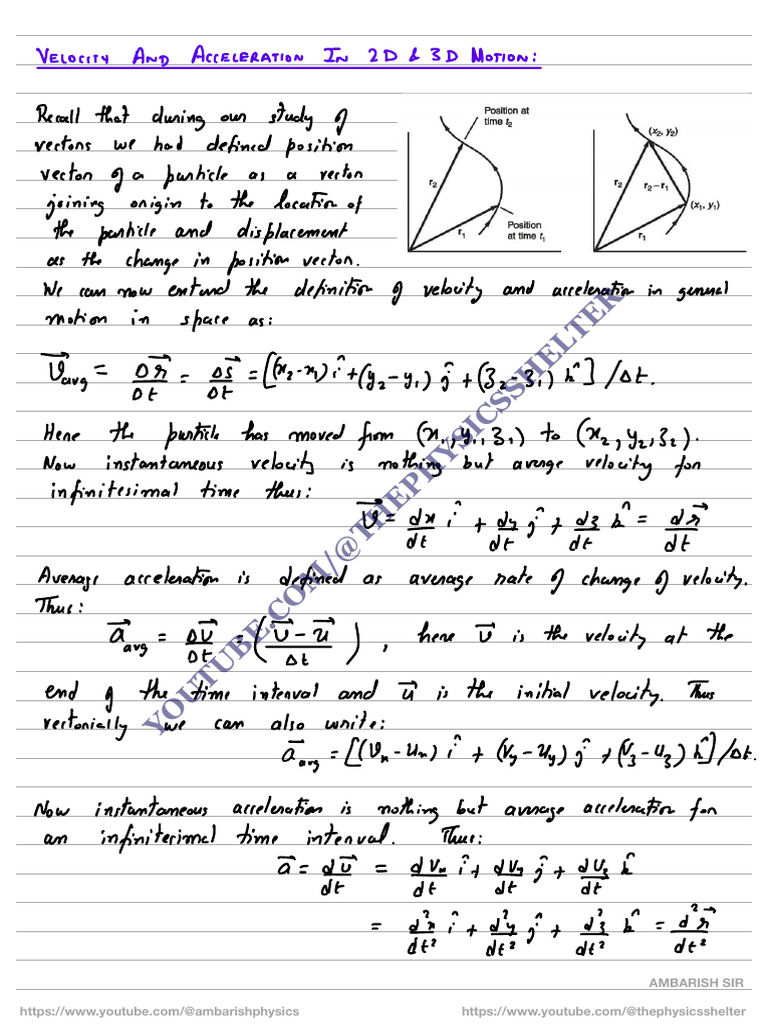 VELOCITY AND ACCELERATION IN 2D & 3D MOTION:
Recall that during our study of
vectors we had defined position
vector of a particle as a vector
joining origin to the location of
the particle and displacement
as the change in position vector.
Position at
time t₂
r₂
r₁
Position
at time t₁
(x₂, y₂)
r₂
r₂–r₁
(x₁, y₁)
r₁
We can now extend the definition of velocity and acceleration in general
motion in space as:
v⃗avg = Δr⃗/Δt = Δs⃗/Δt = [(x₂-x₁)î + (y₂-y₁)ĵ + (z₂-z₁)k̂]/Δt.
Here the particle has moved from (x₁,y₁,z₁) to (x₂,y₂,z₂).
Now instantaneous velocity is nothing but average velocity for
infinitesimal time thus:
v⃗ = dx/dt î + dy/dt ĵ + dz/dt k̂ = dr⃗/dt
Average acceleration is defined as average rate of change of velocity.
Thus:
a⃗avg = Δv⃗/Δt = (v⃗ - u⃗/Δt), here v⃗ is the velocity at the
end of the time interval and u⃗ is the initial velocity. Thus
vectorially we can also write:
a⃗avg = [(Vx-Ux)î + (Vy-Uy)ĵ + (Vz-Uz)k̂]/Δt.
Now instantaneous acceleration is nothing but average acceleration for
an infinitesimal time interval. Thus:
a⃗ = dv⃗/dt = dVx/dt î + dVy/dt ĵ + dVz/dt k̂
= d²x/dt² î + d²y/dt² ĵ + d²z/dt² k̂ = d²r⃗/dt²
YOUTUBE.COM/@THEPHYSICSSHELTER
AMBARISH SIR
https://www.youtube.com/@ambarishphysics
https://www.youtube.com/@thephysicsshelter